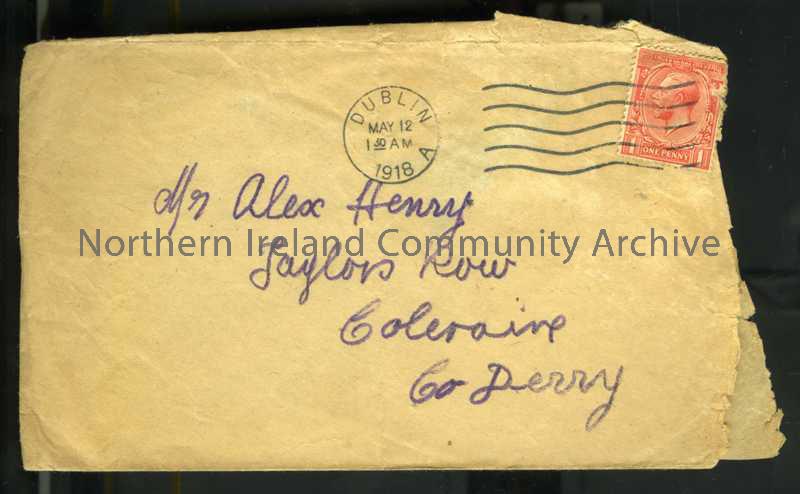 DUBLIN A
MAY 12
1 30 AM
1918
ONE PENNY
Mr Alex Henry
Northern Ireland Community Archive
Taylors Row
Coleraine
Co Derry